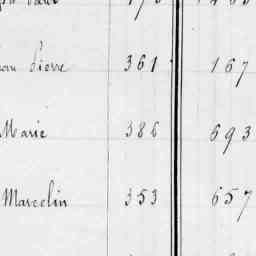 Pierre 361 167
Marie 386 693
Marcelin 353 657